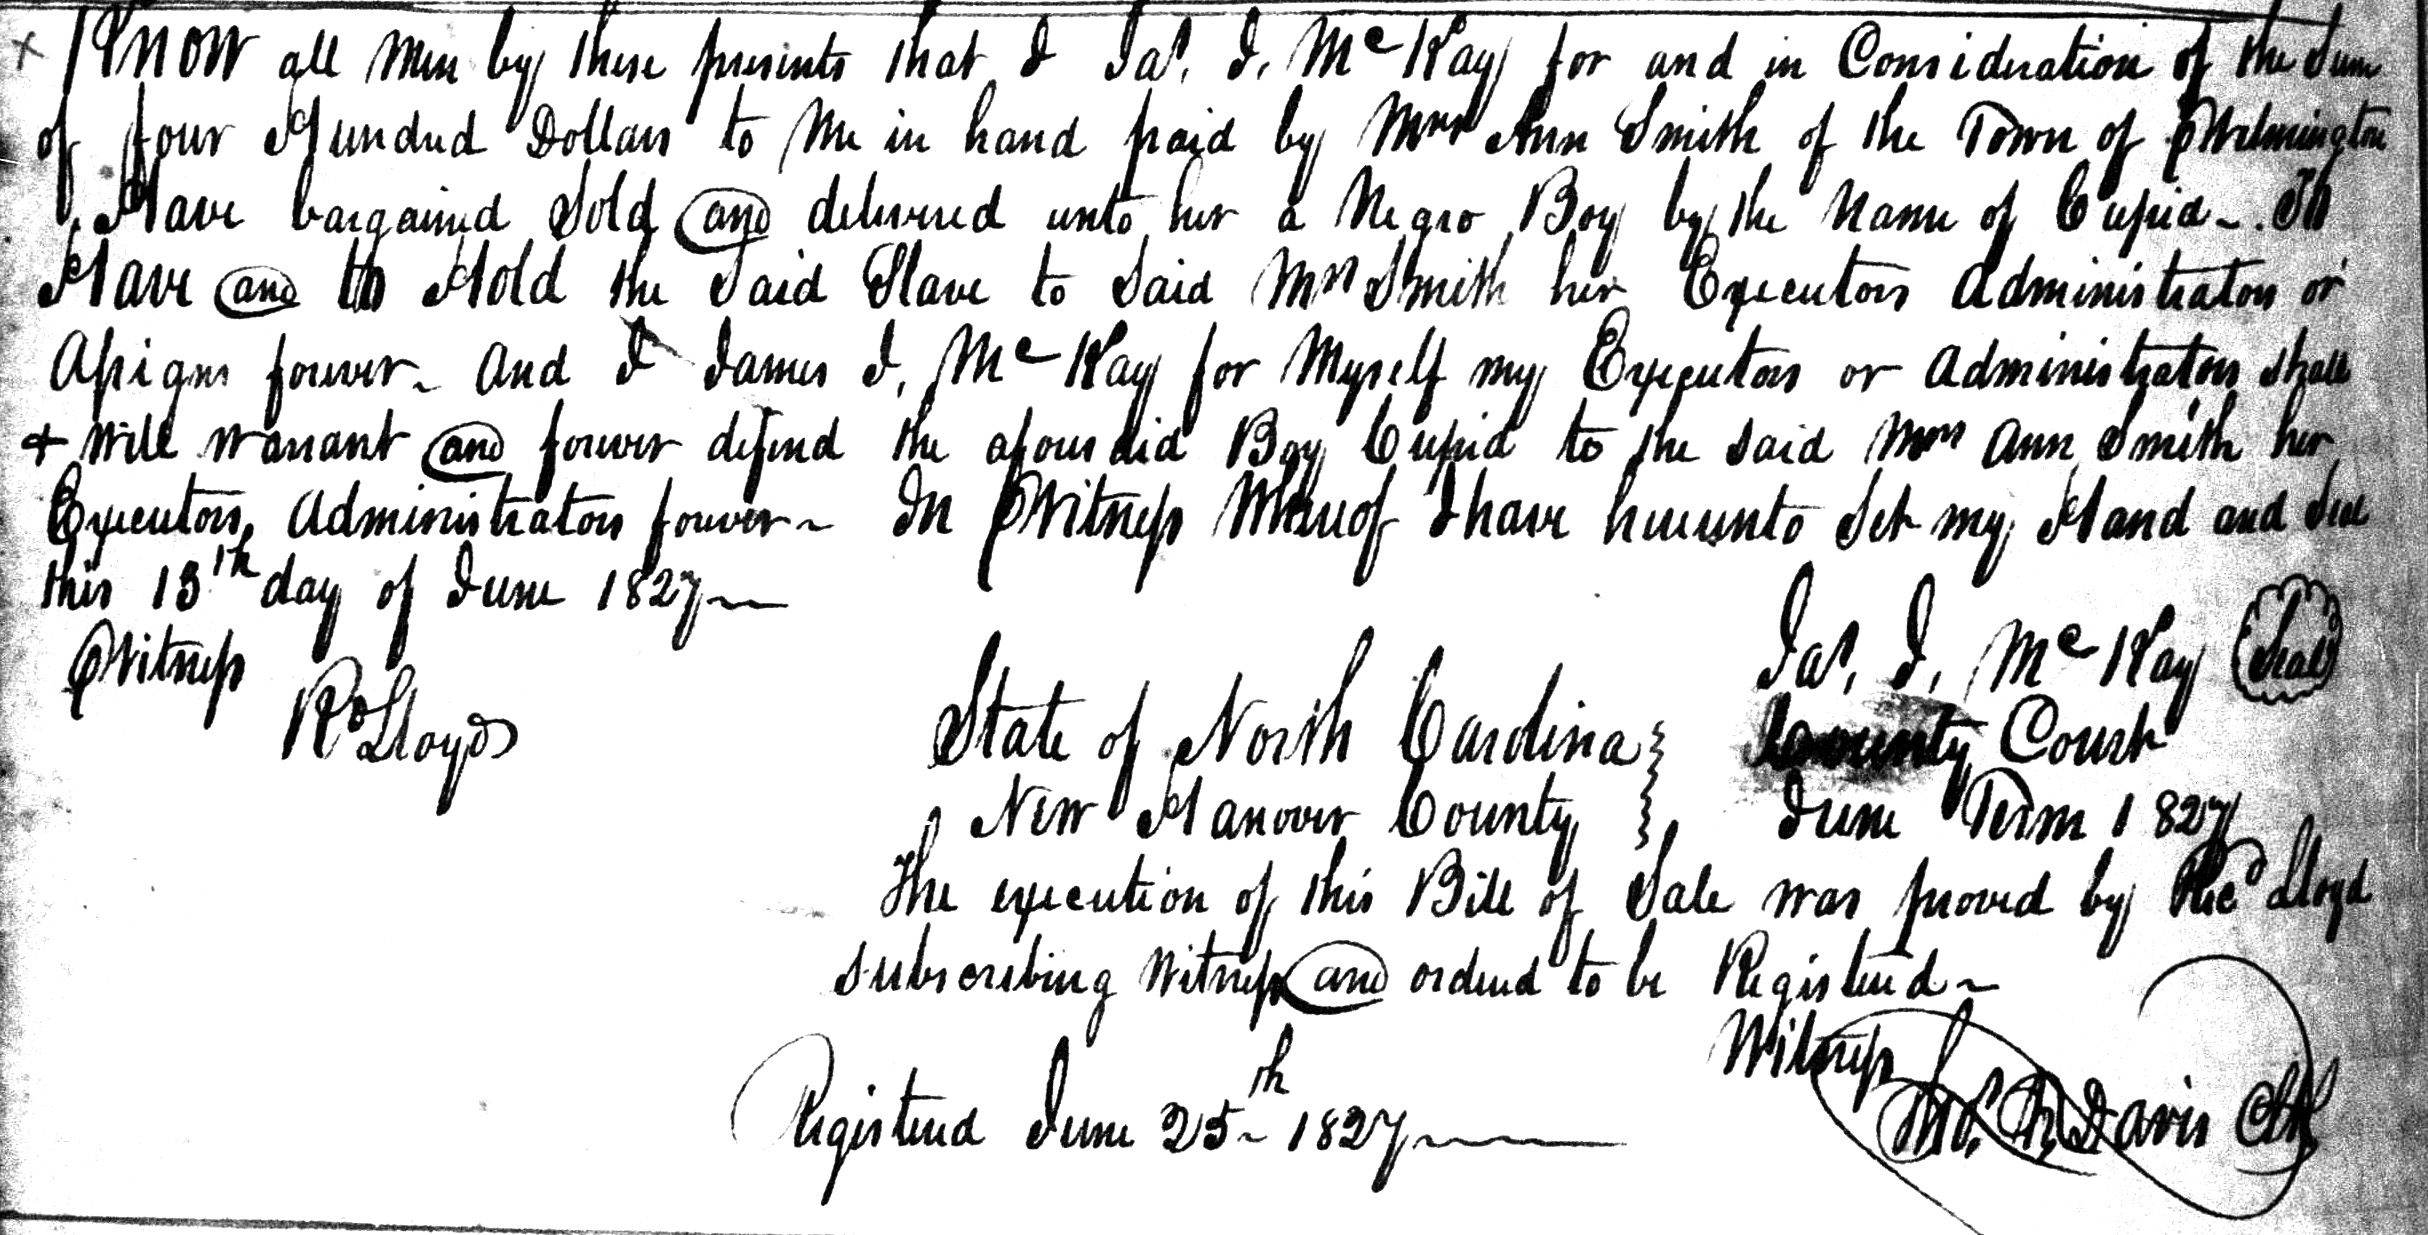 Know all Men by these presents that I Jas. I. McKay for and in Consideration of the Sum
of four Hundred Dollars to Me in hand paid by Mrs Ann Smith of the Town of Wilmington
Have bargained Sold and delivered unto her a Negro Boy by the Name of Cupid ~. To
Have and to Hold the Said Slave to Said Mrs Smith her Executors Administrators or
Assigns forever ~ And I James I. McKay for Myself my Executors or Administrators shall
+ Will Warrant and forever defend the aforesaid Boy Cupid to the said Mrs Ann Smith her
Executors, Administrators forever ~ In Witness Whereof I have hereunto Set my Hand and Seal
this 13th day of June 1827
Witness
Rd Lloyd
Jas. I. McKay Seal
State of North Carolina County Court
New Hanover County June Term 1827
The execution of this Bill of Sale was proved by Ricd Lloyd
subscribing Witness and ordered to be Registered ~
Witness
Davis Clk
Registered June 25th 1827